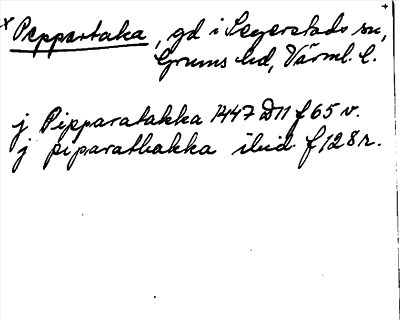 x Peppartaka, gd i Segerstads sn,
Grums hd, Värml. l.
j Pipparatakka 1447 D11 f 65 v.
j piparathakka ibid f 128 r.